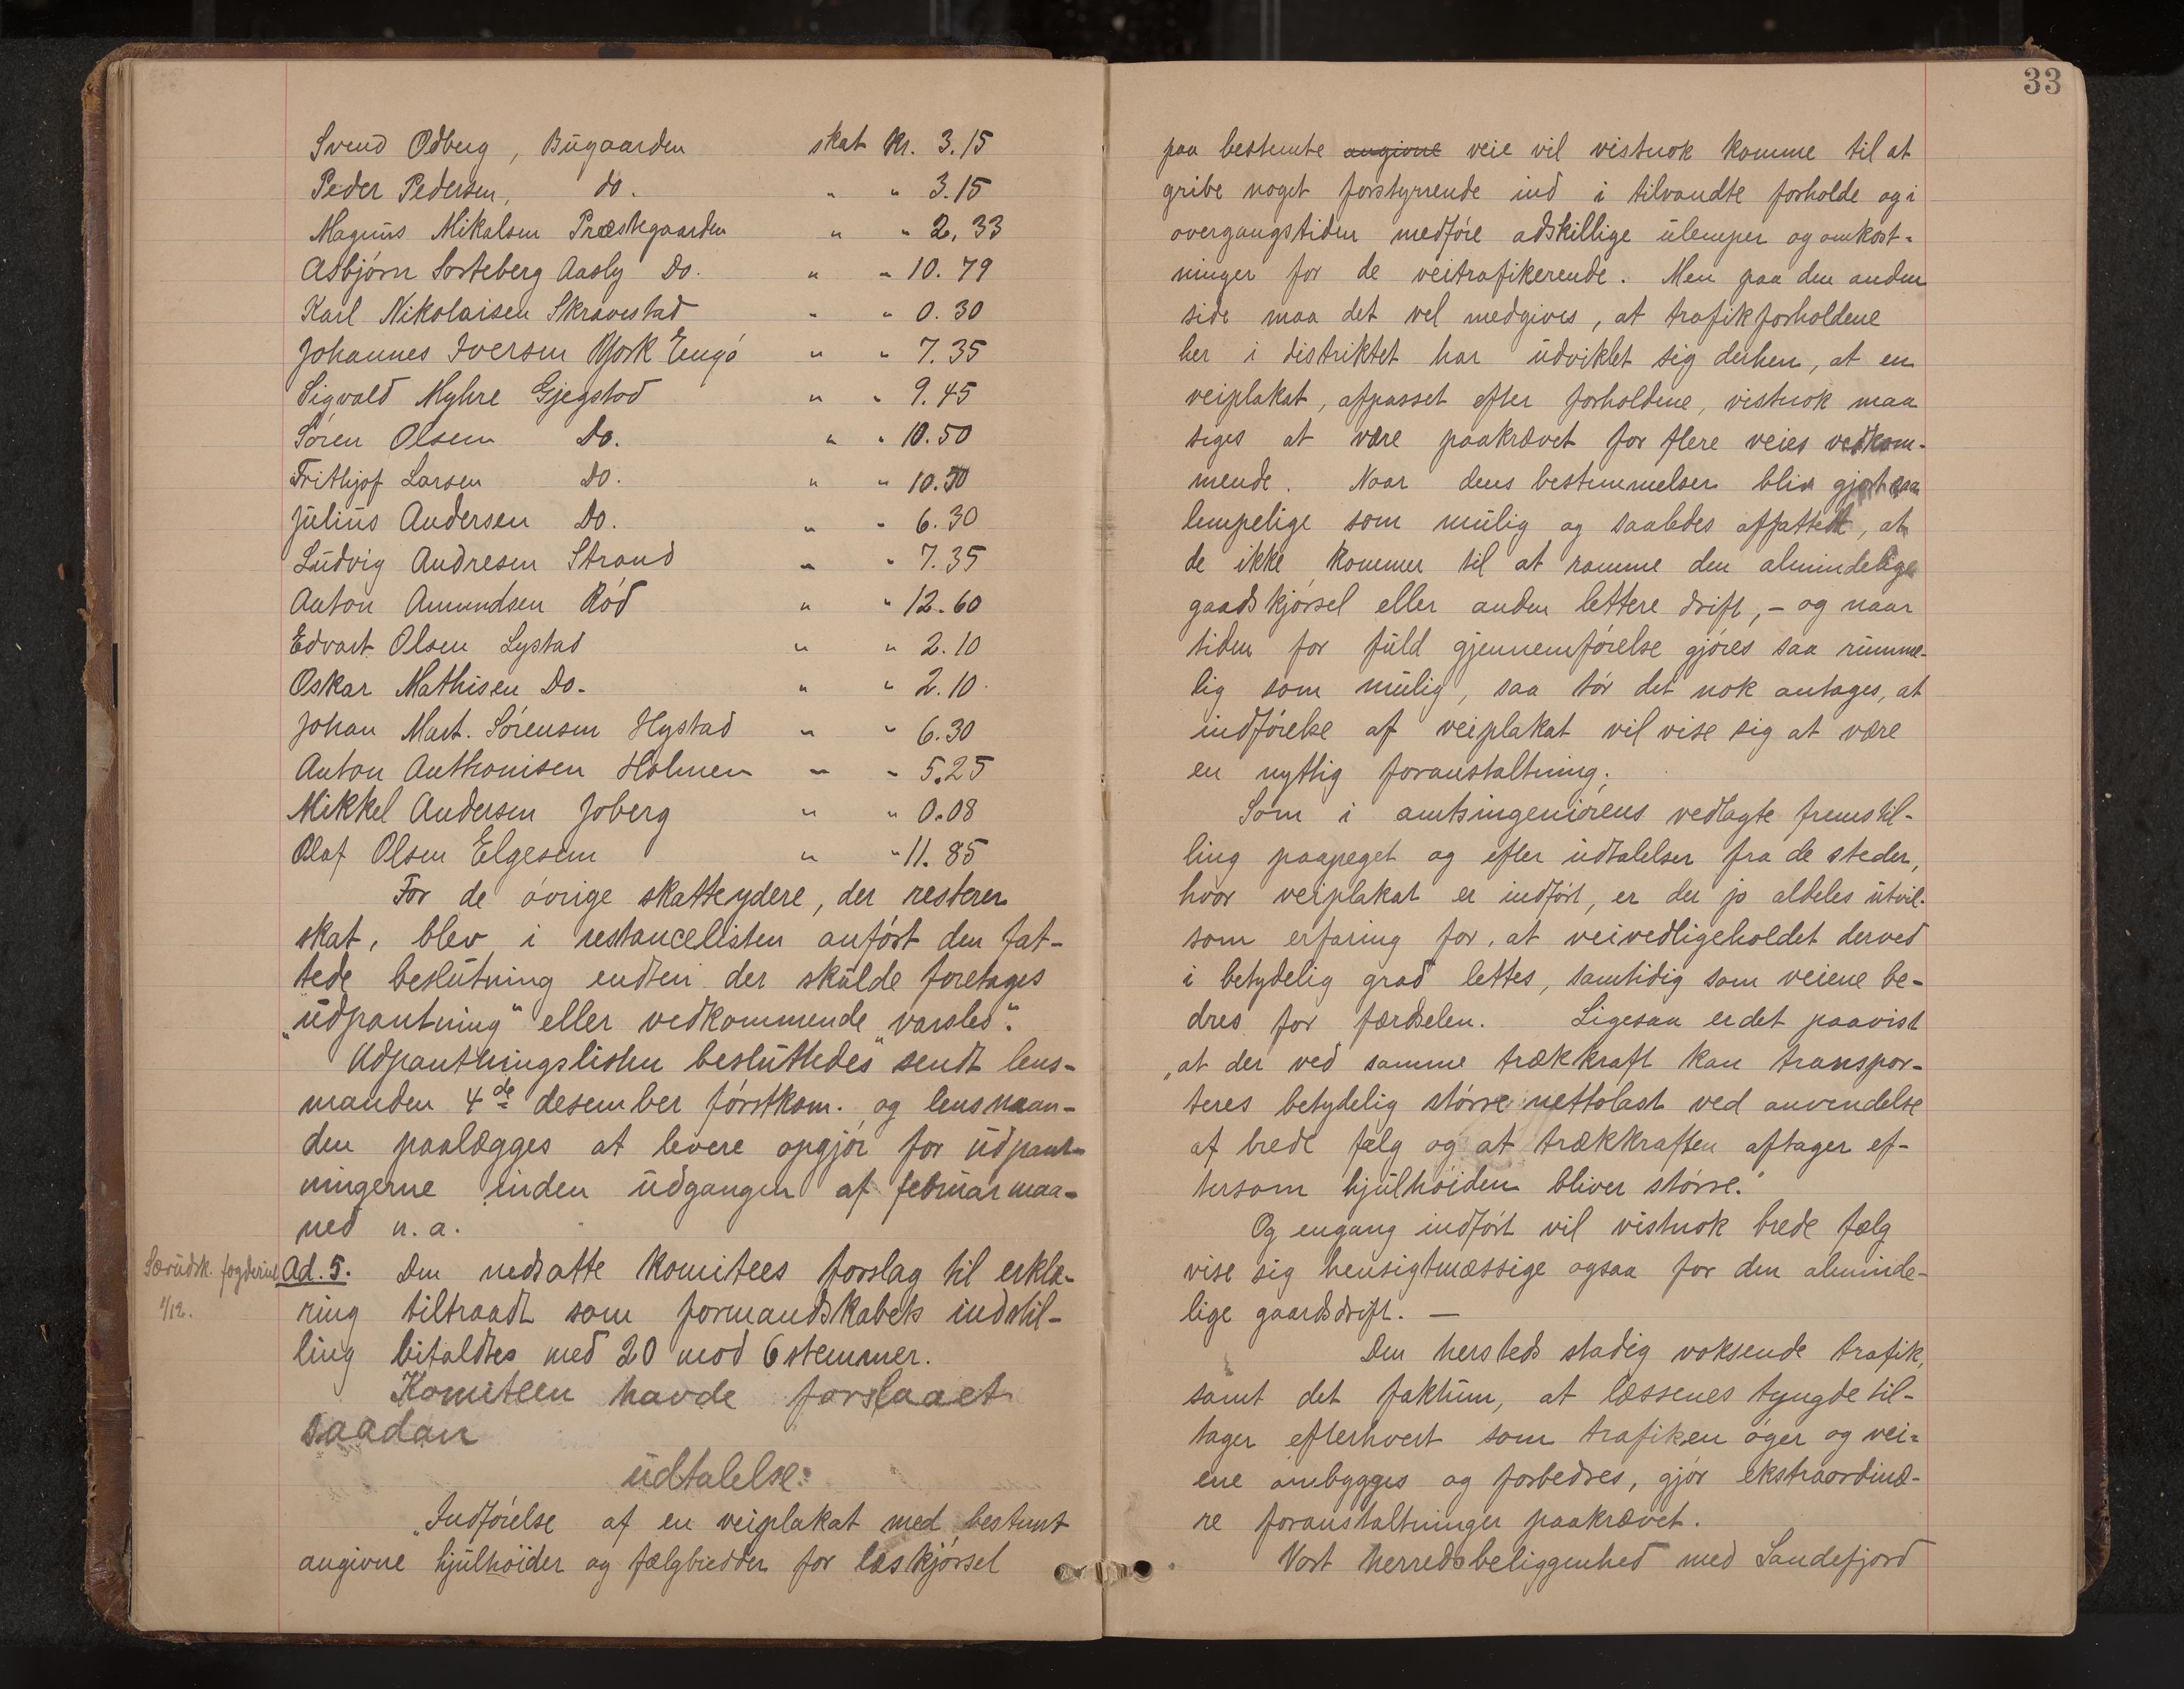 Svend Odberg, Bugaarden skat kr. 3.15
Peder Pedersen, do. " " 3.15
Magnus Mikalsen Præstegaarden " " 2,33
Asbjørn Sorteberg Aasly Do. " " 10.79
Karl Nikolaisen Skravestad " " 0.30
Johannes Iversen Engø " " 7.35
Sigvald Myhre Gjegstad " " 9.45
Søren Olsen Do. " " 10.50
Frithjof Larsen Do. " " 10.50
Julius Andersen Do. " " 6.30
Ludvig Andresen Strand " " 7.35
Anton Amundsen Rød " " 12.60
Edvart Olsen Lystad " " 2.10
Oskar Mathisen Do. " " 2.10
Johan Mart. Sørensen Hystad " " 6.30
Anton Anthonisen Holmen " " 5.25
Mikkel Andersen Joberg " " 0.08
Olaf Olsen Elgesem " " 11.85
For de øvrige skatteydere, der resterer
skat, blev i restancelisten anført den fat-
tede beslutning enten der skulde foretages
"udpantning" eller vedkommende "varsles".
Udpantningslisten besluttedes sendt lens-
manden 4de desember førstkom. og lensman-
den paalægges at levere opgjør for udpant-
ningerne inden udgangen af februar maa-
ned n. a.
Særudsk. fogderiet
1/12.
Ad. 5. Den nedsatte komitees forslag til erklæ-
ring tiltraadt som formandskabets indstil-
ling bifaldtes med 20 mod 6 stemmer.
Komiteen havde forslaaet
saadan
udtalelse:
"Indførelse af en veiplakat med bestemt
angivne hjulhøider og fælgbredder for læskjørsel
33
paa bestemte angivne veie vil vistnok komme til at
gribe noget forstyrrende ind i tilvandte forholde og i
overgangstiden medføre adskillige ulemper og omkost-
ninger for de veitrafikerende. Men paa den anden
side maa det vel medgives, at trafikforholdene
her i distriktet har udviklet sig derhen, at en
veiplakat, afpasset efter forholdene, vistnok maa
siges at være paakrævet for flere veies vedkom-
mende. Naar dens bestemmelser blir gjort saa
lempelige som mulig og saaledes affattet, at
de ikke kommer til at ramme den almindelige
gaadskjørsel eller anden lettere drift, – og naar
tiden for fuld gjennemførelse gjøres saa rumme-
lig som mulig, saa tør det nok antages, at
indførelse af veiplakat vil vise sig at være
en nyttig foranstaltning.
Som i amtsingeniørens vedlagte fremstil-
ling paapeget og efter udtalelser fra de steder,
hvor veiplakat er indført, er der jo aldeles utvil-
som erfaring for, at veivedligeholdet derved
i betydelig grad lettes, samtidig som veiene be-
dres for færdselen. Ligesaa er det paavist
"at der ved samme trækkraft kan transpor-
teres betydelig større nettolast ved anvendelse
af brede fælg og at trækkraften aftager ef-
tersom hjulhøiden bliver større."
Og engang indført vil vistnok brede fælg
vise sig hensigtmæssige ogsaa for den alminde-
lige gaardsdrift. —
Den hersteds stadig voksende trafik,
samt det faktum, at læssenes tyngde til-
tager efterhvert som trafiken øger og vei-
ene ombygges og forbedres, gjør ekstraordinæ-
re foranstaltninger paakrævet.
Vort herredsbeliggenhed med Sandefjord